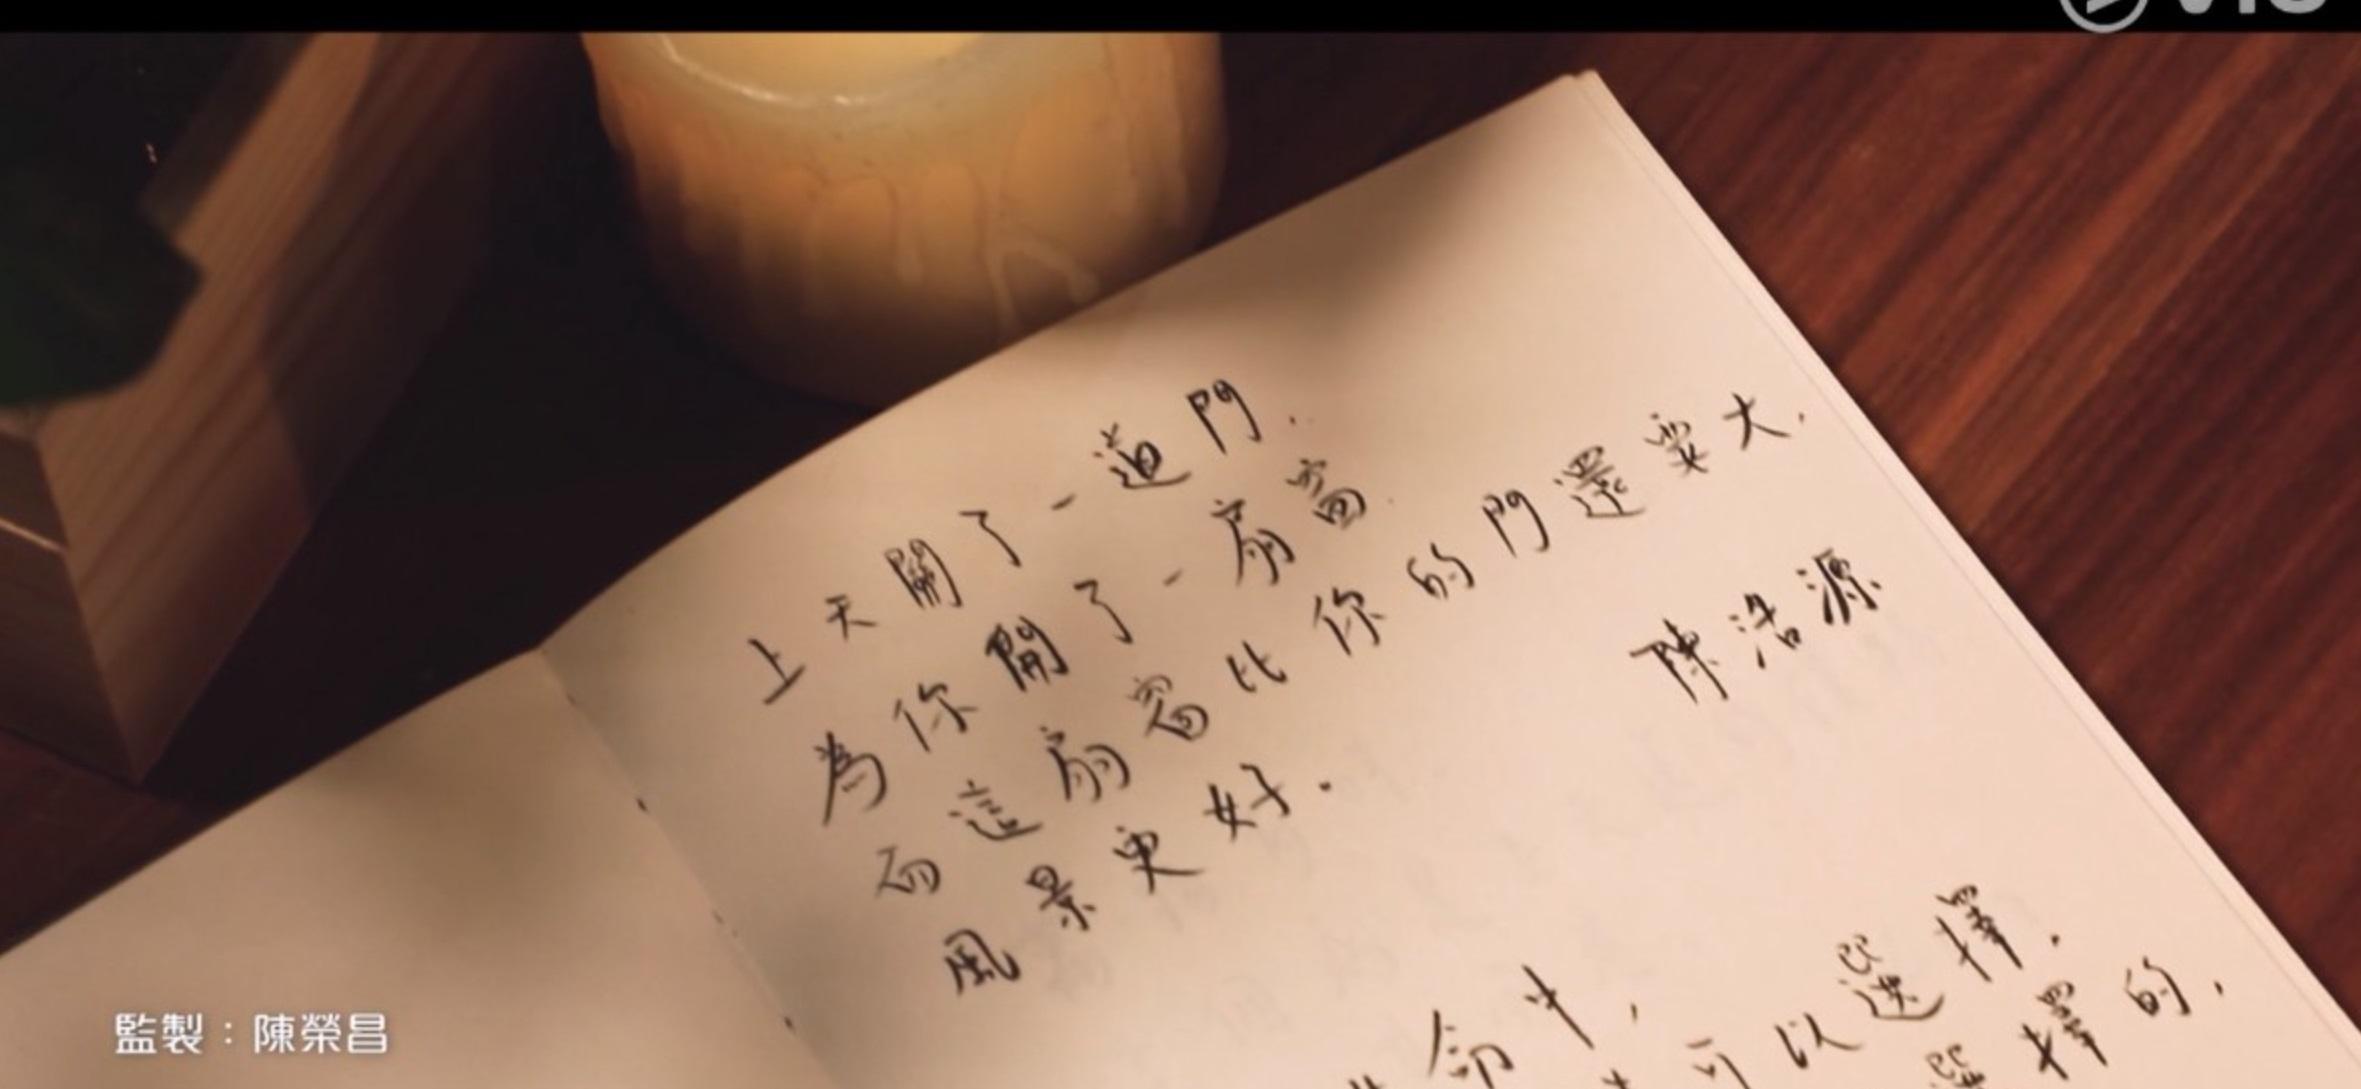 上天關了一道門.
為你開了一扇窗.
而這扇窗比你的門還要大.
風景更好.
陳浩源
命中,
可以選擇.
選擇的,
監製：陳榮昌